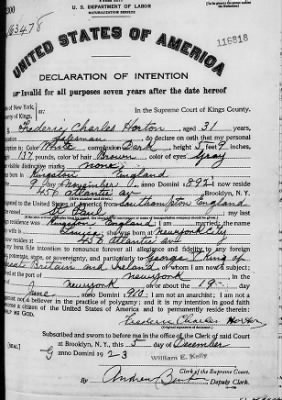 U. S. DEPARTMENT OF LABOR
NATURALIZATION SERVICE
163478
116818
UNITED STATES OF AMERICA
DECLARATION OF INTENTION
Invalid for all purposes seven years after the date hereof
of New York,
In the Supreme Court of Kings County.
of Kings,
Frederic Charles Horton aged 31 years,
Salesman, do declare on oath that my personal
description is: Color White, complexion Dark, height 5 feet 9 inches,
137 pounds, color of hair Brown, color of eyes Gray
visible distinctive marks none
Kingston England
9 day of November, anno Domini 1892; I now reside
458 Atlantic av
United States of America from Southampton England
St Paul; my last
residence was Kingston England; I am married; the name
Louise; was born at New York City
resides at 458 Atlantic ave
bona fide intention to renounce forever all allegiance and fidelity to any foreign
potentate, state, or sovereignty, and particularly to George V King of
Great Britain and Ireland, of whom I am now a subject;
arrived at the port of New York, in the
New York, on or about the 19 day
June, anno Domini 1910; I am not an anarchist; I am not a
nor a believer in the practice of polygamy; and it is my intention in good faith
a citizen of the United States of America and to permanently reside therein:
HELP ME GOD.
Frederic Charles Horton
(Original signature of declarant.)
Subscribed and sworn to before me in the office of the Clerk of said Court
[SEAL]
at Brooklyn, N. Y., this 5 day of December
anno Domini 1923
William E. Kelly
Clerk of the Supreme Court.
By Andrew, Deputy Clerk.